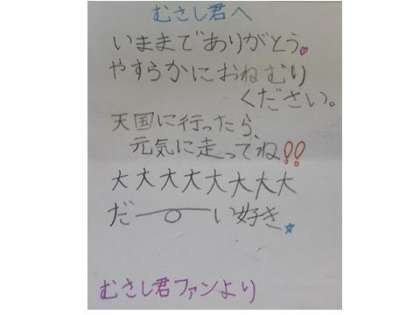 むさし君へ
いままでありがとう。
やすらかにおねむり
ください。
天国に行ったら、
元気に走ってね!!
大大大大大大大大
だーーい好き
むさし君ファンより